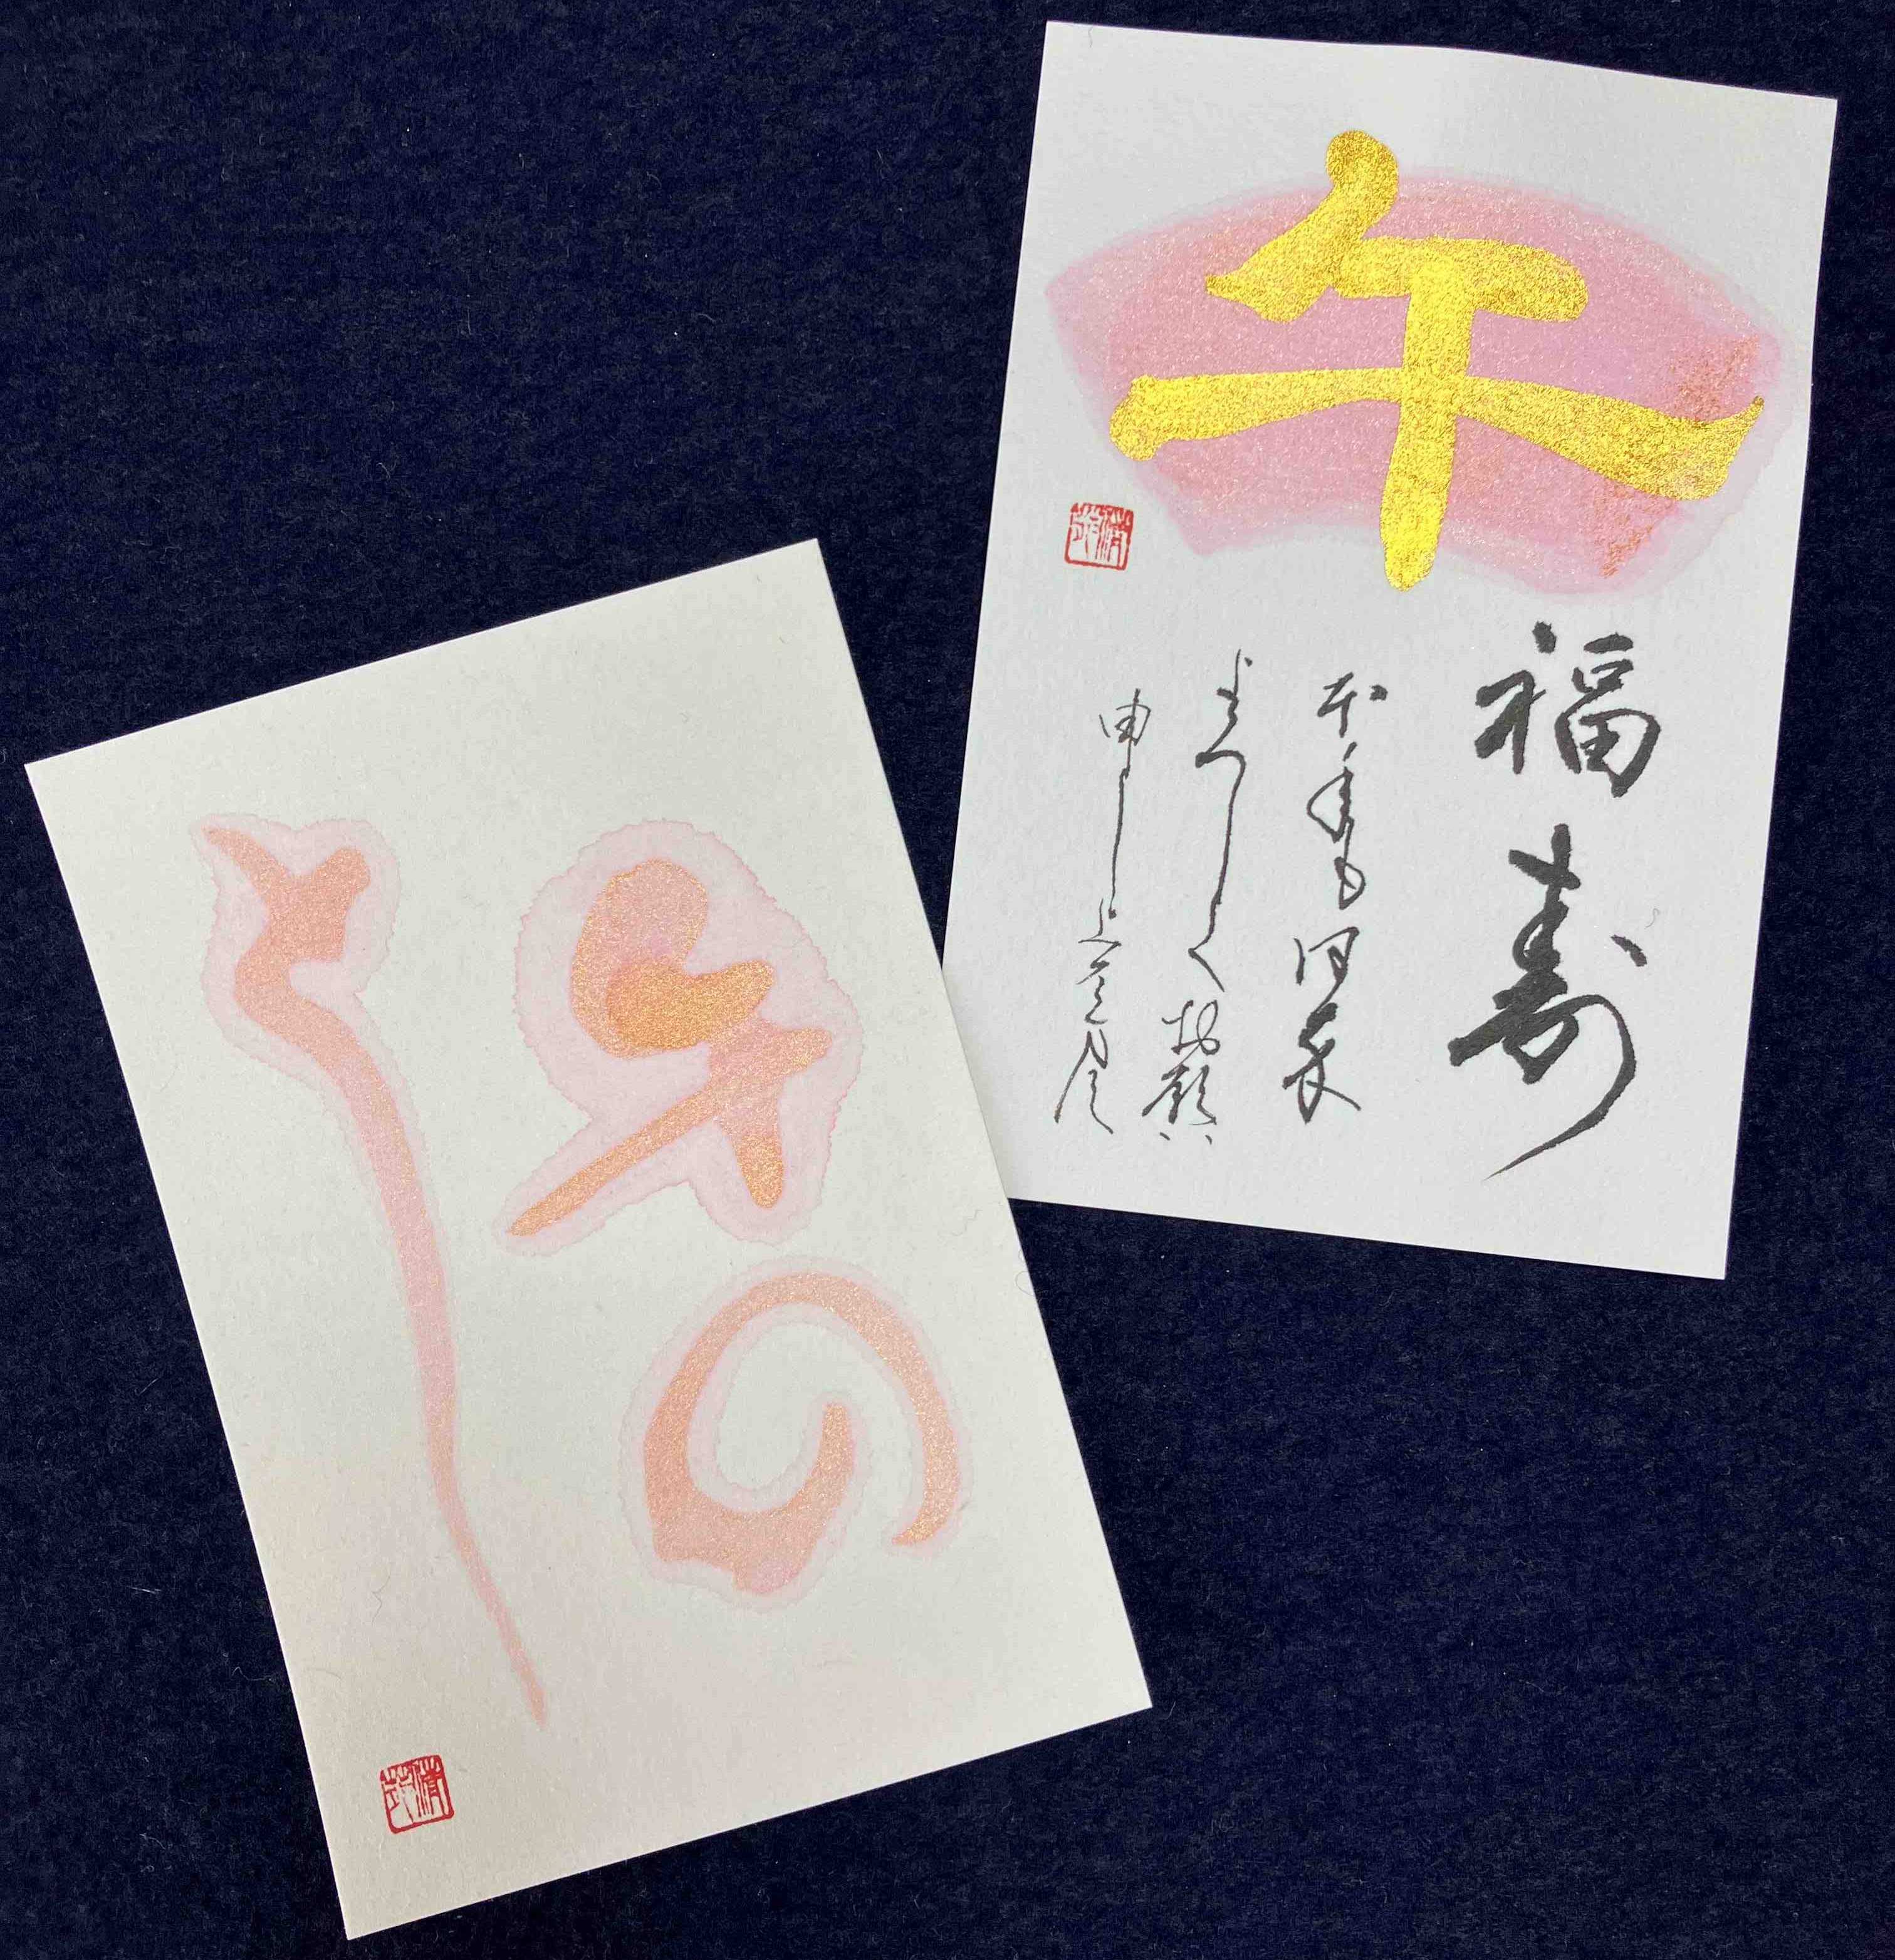 午
福寿
本年も何卒
よろしくお願い
申し上げます
午の
とし